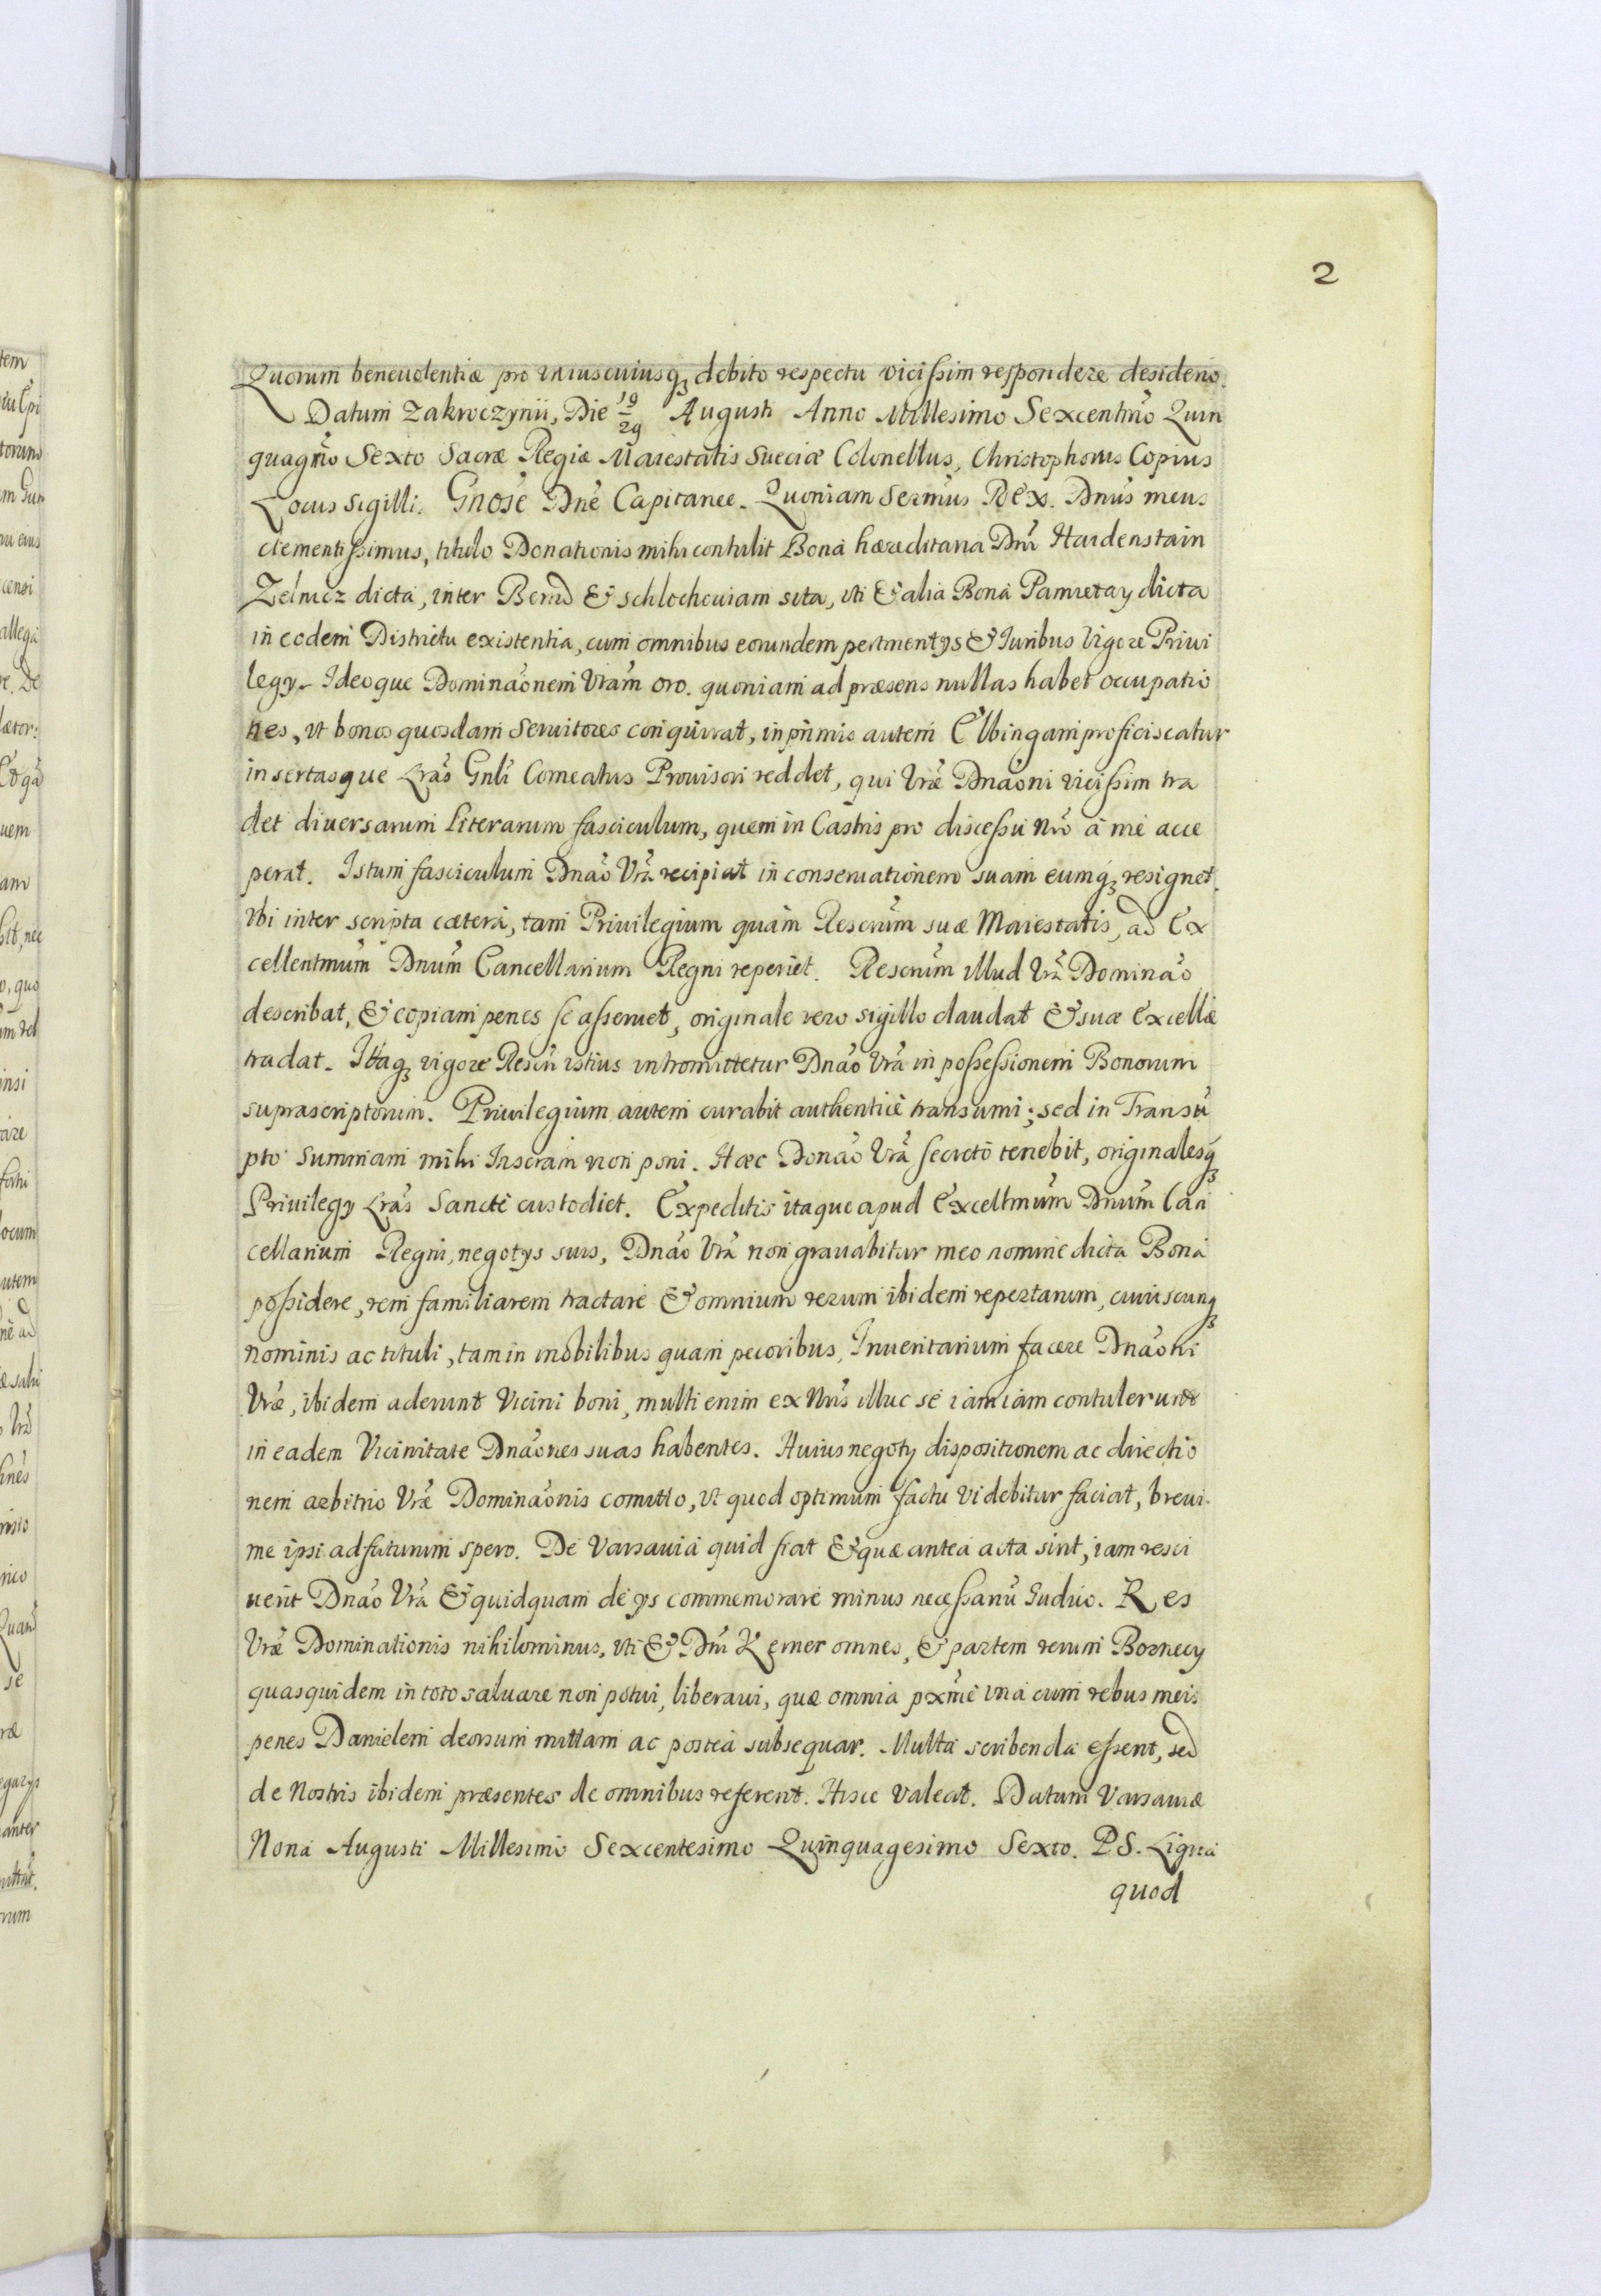 2
Quorum beneuolentiæ pro uniuscuiusq₃ debito respectu vicissim respondere desiderio.
Datum Zakroczynii, Die 19/29 Augusti Anno Millesimo Sexcentm̃o Quin
quagm̃o Sexto Sacræ Regiæ Maiestatis Sueciæ Colonellus, Christophorus Copius
Locus Sigilli. Gnose Dne Capitanee. Quoniam Sermus REx. Dnus meus
clementissimus, titulo Donationis mihi contulit Bona hæreditaria Dni Hardenstain
Zelnicz dicta, inter Bernd & Schlocheuiam sita, uti & alia Bona Pamietay dicta
in eodem Districtu existentia, cum omnibus eorundem pertinentys & Iuribus Vigore Priui
legy. Ideoque Dominaonem Vram oro. quoniam ad præsens nullas habet occupatio
nes, ut bonos quosdam Seruitores conquirat, in primis autem Elbingam proficiscatur
insertasque Lras Gnli Comeatus Prouisori reddet, qui Vræ Dnaoni vicissim tra
det diuersarum Literarum fasciculum, quem in Castris pro discessu nro a me acce
perat. Istum fasciculum Dnao Vra recipiat in conseruationem suam eumq₃ resignet.
Vbi inter scripta cætera, tam Priuilegium quam Rescrum suæ Maiestatis, ad Ex
cellentmum Dnum Cancellarium Regni reperiet. Rescrum illud Vra Dominao
describat, & copiam penes se asseruet, originale vero sigillo claudat & suæ Excellæ
tradat. Itaq₃ vigore Rescri istius intromittetur Dnao Vra in possessionem Bonorum
suprascriptorum. Priuilegium autem curabit authentice transumi; sed in Transu
pto Summam mihi Inscram non poni. Hæc Donao Vra secreto tenebit, originalesq₃
Priuilegy Lras Sancte custodiet. Expeditis itaque apud Excellmum Dnum Can
cellarium Regni, negotys suis, Dnao Vra non grauabitur meo nomine dicta Bona
possidere, rem familiarem tractare & omnium rerum ibidem repertarum, cuiuscunq₃
nominis ac tituli, tam in mobilibus quam pecoribus, Inuentarium facere Dnaoni
Vræ, ibidem aderunt Vicini boni, multi enim ex Nris illuc se iamiam contulerunt
in eadem Vicinitate Dnaones suas habentes. Huius negoty dispositionem ac directio
nem arbitrio Vræ Dominaonis comitto, ut quod optimum factu Videbitur faciat, breui
me ipsi adfuturum spero. De Varsauia quid fiat & quæ antea acta sint, iam resci
uerit Dnao Vra & quidquam de ys commemorare minus necessariu Iudico. Res
Vræ Dominationis nihilominus, uti & Dni Kerner omnes, & partem rerum Bornecy
quas quidem in toto saluare non potui, liberaui, quæ omnia pxme una cum rebus meis
penes Danielem deorsum mittam ac postea subsequar. Multa scribenda essent, sed
de Nostris ibidem præsentes de omnibus referent. Hisce Valeat. Datum Varsauiæ
Nona Augusti Millesimo Sexcentesimo Quinquagesimo Sexto. PS. Ligna
quod